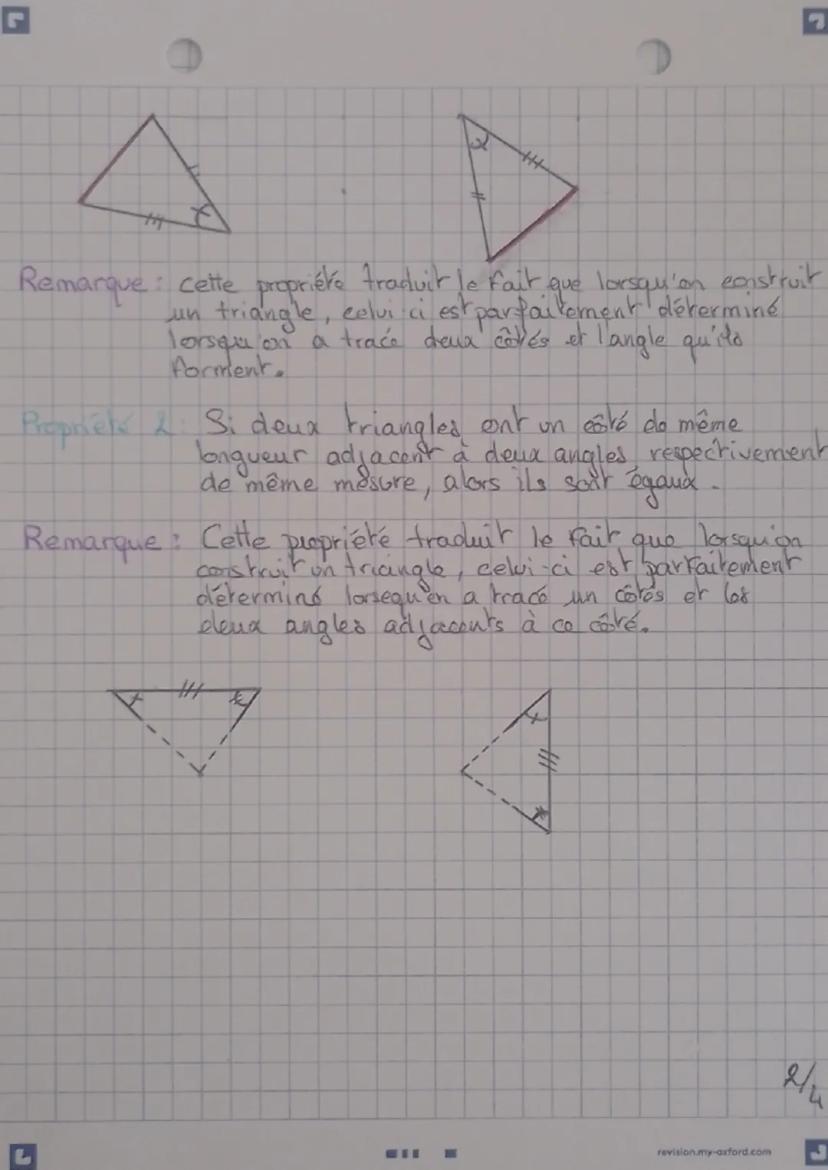 Remarque : cette propriété traduit le fait que lorsqu'on construit
un triangle, celui ci est parfaitement déterminé
lorsqu'on a tracé deux côtés et l'angle qu'ils
forment.
Propriété 2 : Si deux triangles ont un côté de même
longueur adjacent à deux angles respectivement
de même mesure, alors ils sont égaux.
Remarque : Cette propriété traduit le fait que lorsqu'on
construit un triangle, celui-ci est parfaitement
déterminé lorsequ'on a tracé un côtés et les
deux angles adjacents à ce côté.
2/4
revision.my-oxford.com